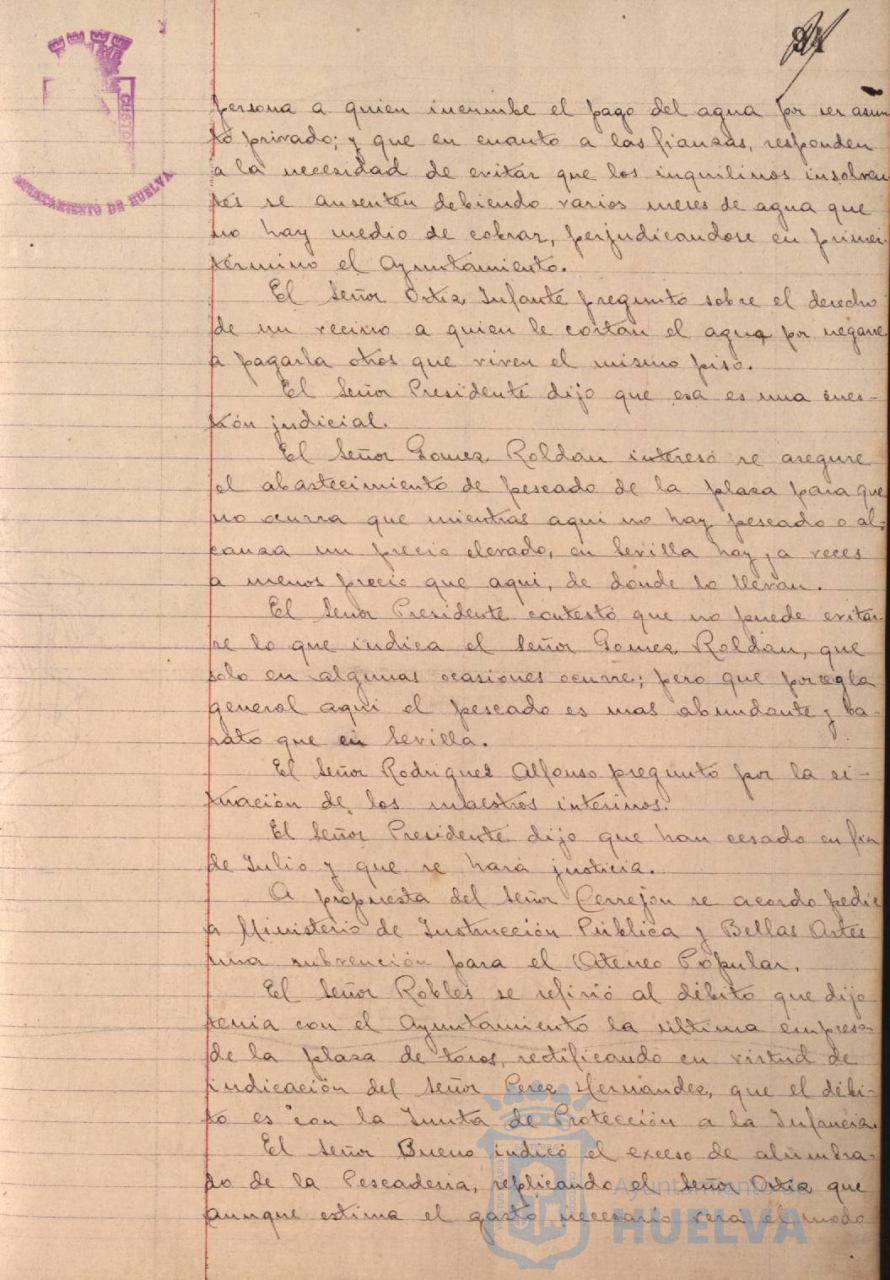 94
CUSTOD
AYUNTAMIENTO DE HUELVA
persona a quien incumbe el pago del agua por ser asun
to privado; y que en cuanto a las fianzas, responden
a la necesidad de evitar que los inquilinos insolven
tes se ausenten debiendo varios meses de agua que
no hay medio de cobrar, perjudicandose en primer
término el Ayuntamiento.
El Señor Ortiz Infante pregunto sobre el derecho
de un vecino a quien le cortan el agua por negarse
a pagarla otros que viven el mismo piso.
El Señor Presidente dijo que esa es una cues-
tión judicial.
El Señor Gomez Roldan interesó se asegure
el abastecimiento de pescado de la plaza para que
no ocurra que mientras aqui no hay pescado o al-
canza un precio elevado, en Sevilla hay, a veces
a menos precio que aqui, de donde lo llevan.
El Señor Presidente contestó que no puede evitar-
se lo que indica el Señor Gomez Roldán, que
solo en algunas ocasiones ocurre; pero que por regla
general aqui el pescado es mas abundante y ba-
rato que en Sevilla.
El Señor Rodriguez Alfonso pregunto por la si-
tuación de los maestros interinos.
El Señor Presidente dijo que han cesado en fin
de Julio y que se hará justicia.
A propuesta del Señor Cerrejon se acordo pedir
a Ministerio de Instrucción Pública y Bellas Artes
una subvención para el Ateneo Popular.
El Señor Robles se refirió al débito que dijo
tenia con el Ayuntamiento la ultima empresa
de la plaza de toros, rectificando en virtud de
indicación del Señor Perez Hernandez, que el débi-
to es con la Junta de Protección a la Infancia.
El Señor Bueno indicó el exceso de alumbra-
do de la Pescaderia, replicando el Señor Ortiz que
aunque estima el gasto necesario verá el modo
Ayuntamiento de
HUELVA